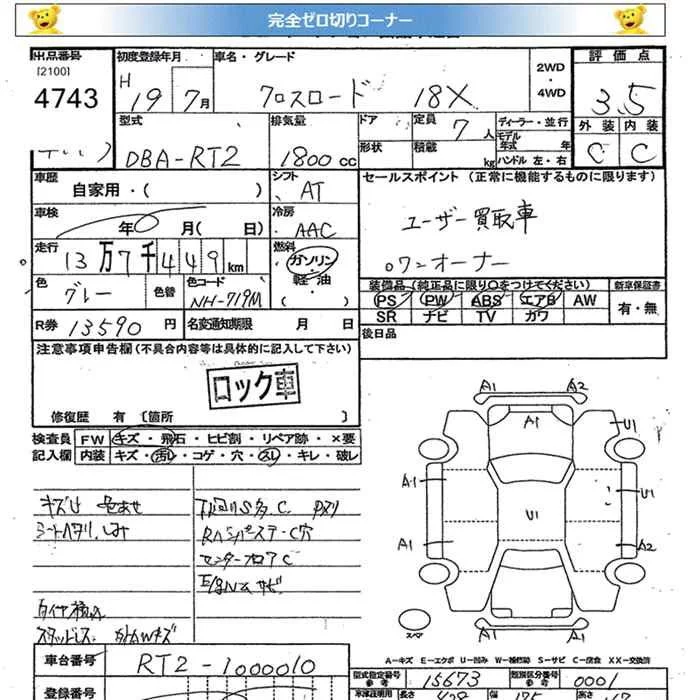 完全ゼロ切りコーナー
出品番号 初度登録年月 車名・グレード 2WD・4WD 評価点
[2100]
4743 H 19 7月 クロスロード 18X 3.5
型式 排気量 ドア 定員 7人 ディーラー・並行 外装 内装
DBA-RT2 1800cc 形状 積載 kg モデル年式 年 ハンドル 左・右 C C
車歴 自家用・( ) シフト AT セールスポイント (正常に機能するものに限ります)
車検 年 月( 日) 冷房 AAC ユーザー買取車
走行 13万7千449km 燃料 ガソリン・軽油・( ) ワンオーナー
色 グレー 色替 色コード NH-719M 装備品 (純正品に限り○をつけてください) 新車保証書
PS PW ABS エアB AW 有・無
SR ナビ TV カワ
R券 13590円 名変通知期限 月 日 後日品
注意事項申告欄(不具合内容等は具体的に記入して下さい)
ロック車
修復歴 有 [箇所 ]
検査員 FW キズ・飛石・ヒビ割・リペア跡・×要
記入欄 内装 キズ・汚れ・コゲ・穴・スレ・キレ・破レ
キズ凹 色あせ 下回りS多、C
シートヘタリ、しみ
センターフロアC
タイヤ積込
スタッドレス
A1 A2
A1 U1
A1 U1
U1
A1 A2
スペア
A1 A1
A-キズ E-エクボ U-凹み W-補修跡 S-サビ C-腐食 XX-交換済
車台番号 RT2-1000010 型式指定番号 参考 15673 類別区分番号 参考 0001
登録番号 車庫証明用 参考 長さ 幅 高さ